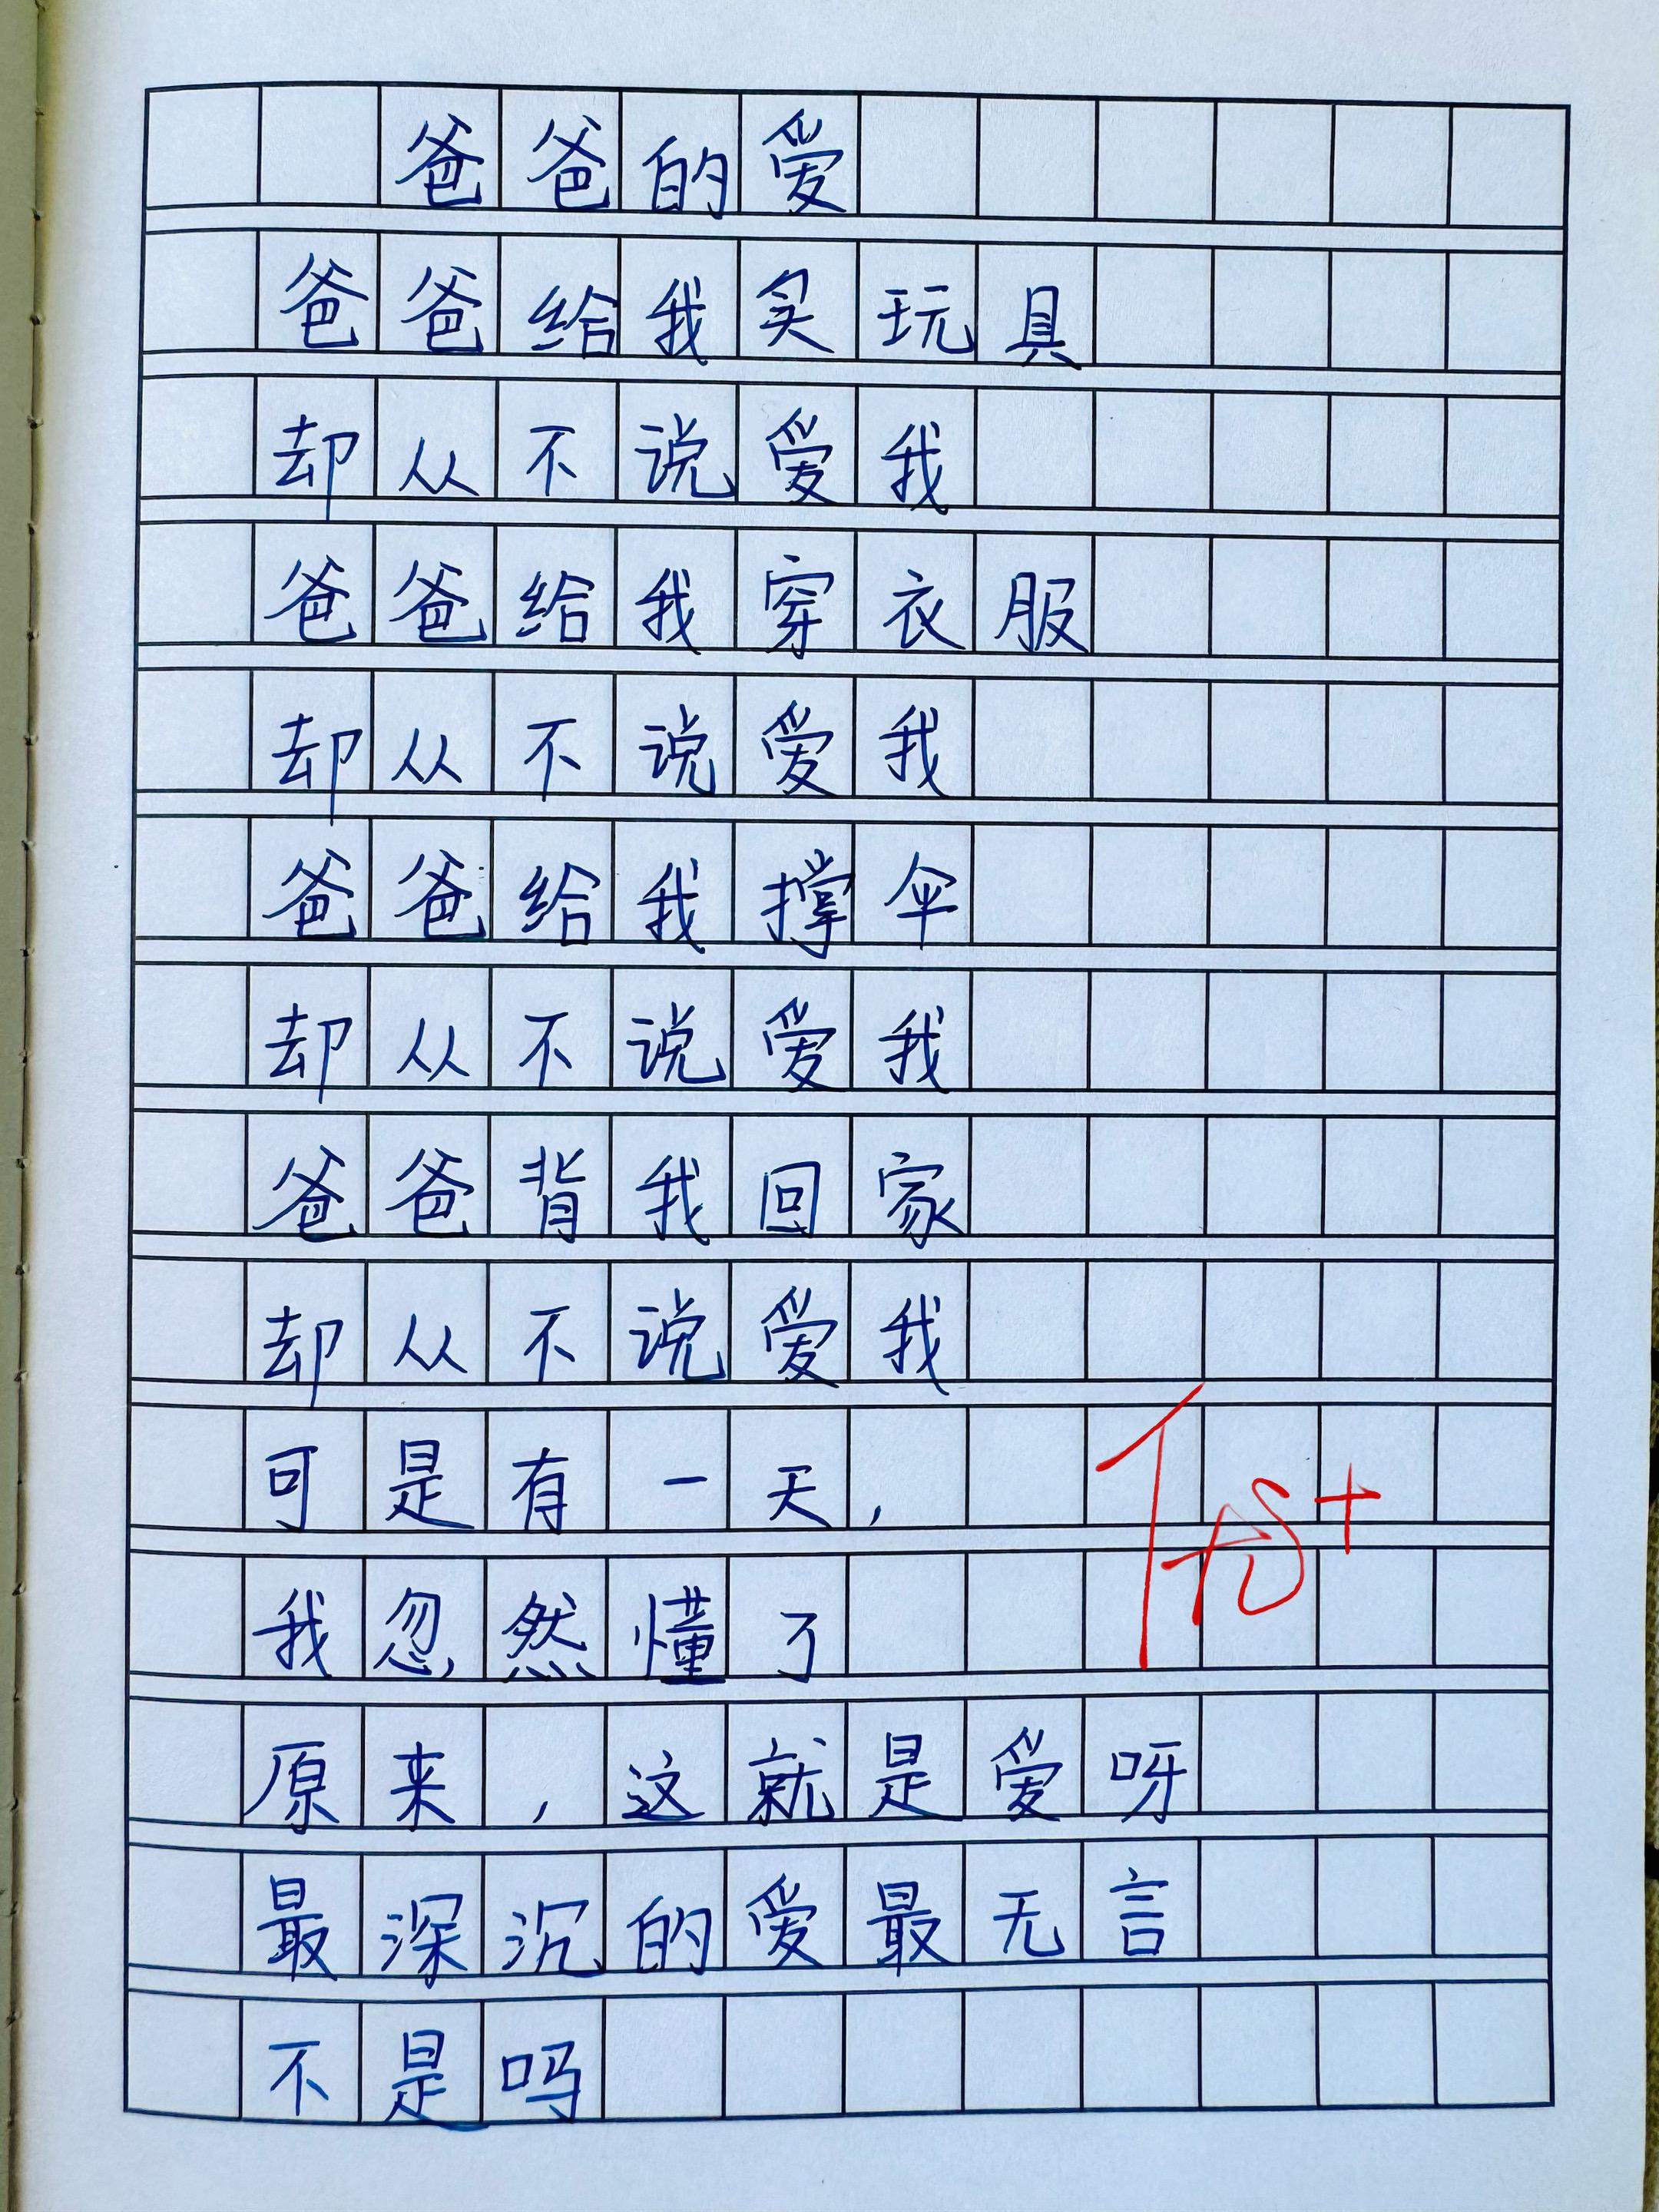 爸爸的爱
爸爸给我买玩具
却从不说爱我
爸爸给我穿衣服
却从不说爱我
爸爸给我撑伞
却从不说爱我
爸爸背我回家
却从不说爱我
可是有一天,
我忽然懂了
原来,这就是爱呀
最深沉的爱最无言
不是吗
优+